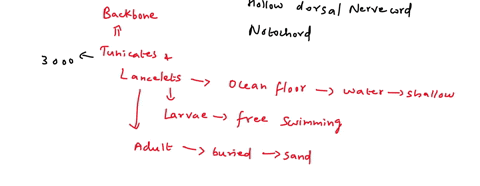 Hollow dorsal Nervecord
Backbone
Notochord
3000 ← Tunicates &
Lancelets → Ocean floor → water → shallow
Larvae → free swimming
Adult → buried → sand